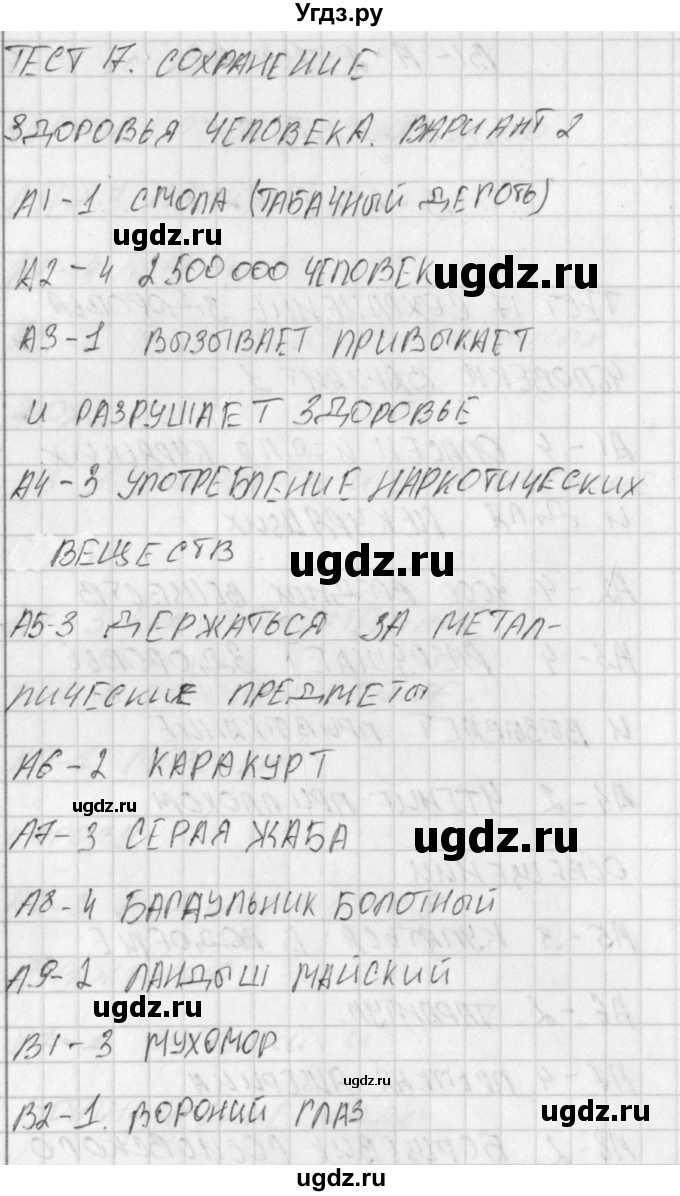 Угдз.ру
ТЕСТ 17. СОХРАНЕНИЕ
ЗДОРОВЬЯ ЧЕЛОВЕКА. ВАРИАНТ 2
А1-1 СМОЛА (ТАБАЧНЫЙ ДЕГОТЬ)
ugdz.ru
А2-4 2500000 ЧЕЛОВЕК
ugdz.ru
А3-1 ВЫЗЫВАЕТ ПРИВЫКАЕТ
И РАЗРУШАЕТ ЗДОРОВЬЕ
А4-3 УПОТРЕБЛЕНИЕ НАРКОТИЧЕСКИХ
ВЕЩЕСТВ
ugdz.ru
А5-3 ДЕРЖАТЬСЯ ЗА МЕТАЛ-
ЛИЧЕСКИЕ ПРЕДМЕТЫ
А6-2 КАРАКУРТ
ugdz.ru
А7-3 СЕРАЯ ЖАБА
ugdz.ru
А8-4 БАГАУЛЬНИК БОЛОТНЫЙ
А.9-2 ЛАНДЫШ МАЙСКИЙ
ugdz.ru
В1-3 МУХОМОР
ugdz.ru
В2-1. ВОРОНИЙ ГЛАЗ
ugdz.ru
ugdz.ru